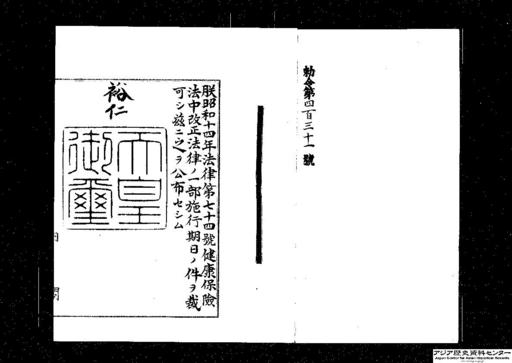 勅令第四百三十一號
朕昭和十四年法律第七十四號健康保險
法中改正法律ノ一部施行期日ノ件ヲ裁
可シ茲ニ之ヲ公布セシム
裕仁
天皇
御璽
内 閣
アジア歴史資料センター
Japan Center for Asian Historical Records